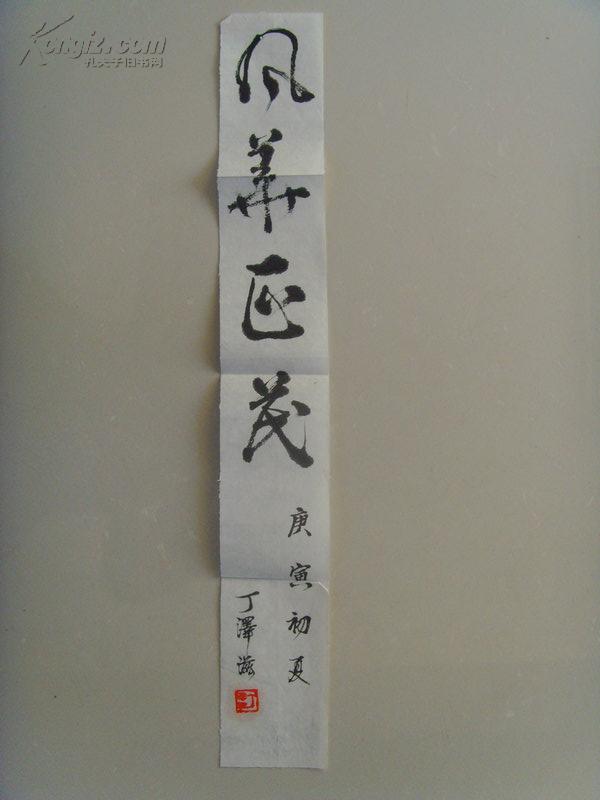 Kongfz.com
孔夫子旧书网
风华正茂
庚寅初夏
丁澤滋